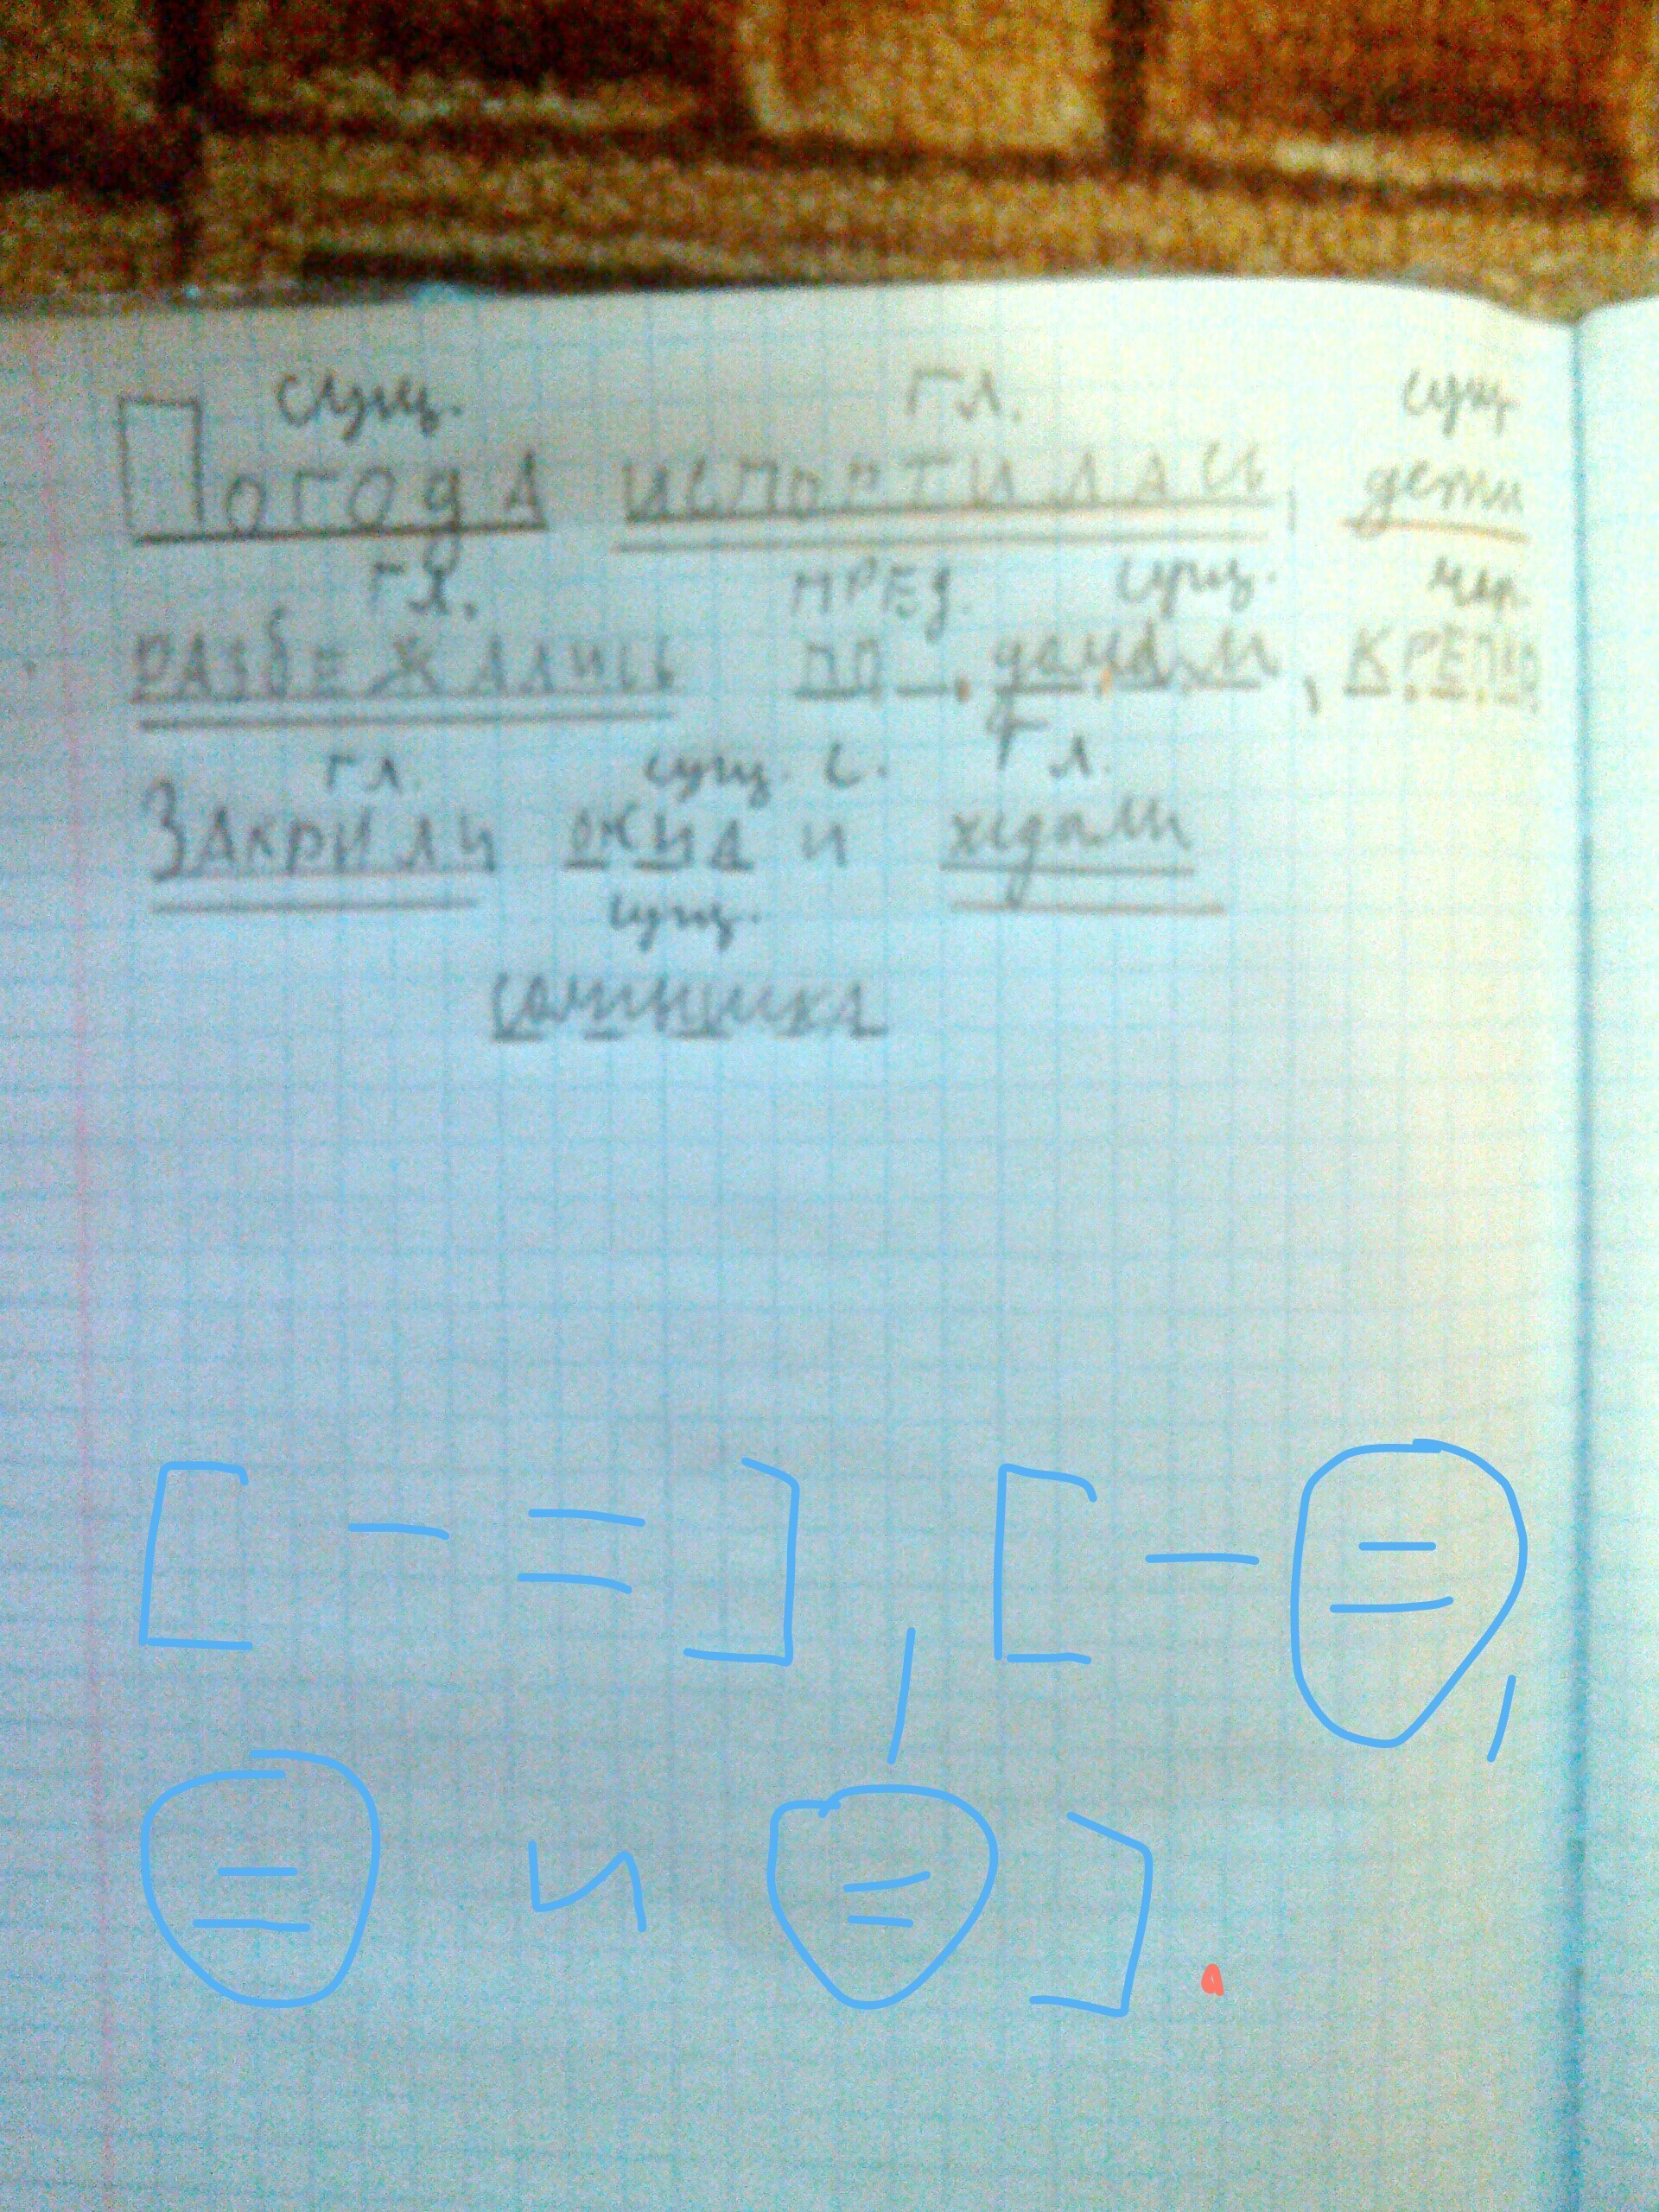 сущ. гл. сущ
Погода испортилась, дети
гл. пред. сущ. нар.
разбежались по домам, крепко
гл. сущ. с. гл.
Закрили окна и ждали
сущ.
солнышка
[ − = ] , [ − = ,
= и = ] .